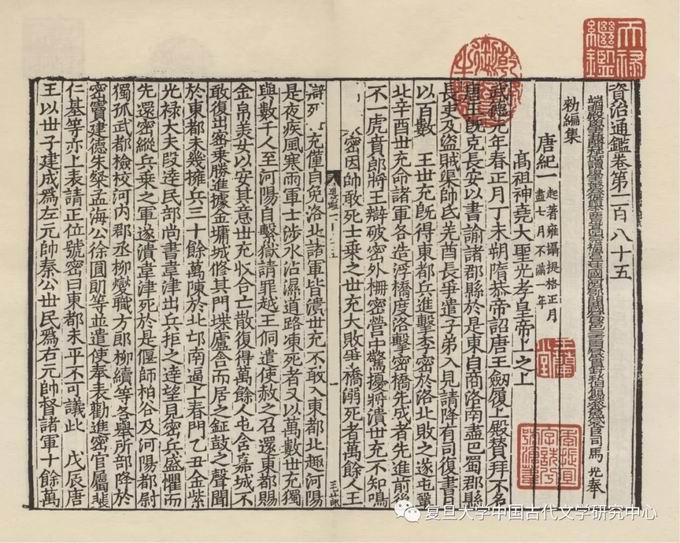 資治通鑑卷第一百八十五
司馬光奉
勑編集
唐紀一 起著雍攝提格正月盡七月不滿一年
高祖神堯大聖光孝皇帝上之上
武德元年春正月丁未朔隋恭帝詔唐王劒履上殿贊拜不名
唐王旣克長安以書諭諸郡縣於是東自商洛南盡巴蜀郡縣
長吏及盜賊渠帥氐羌酋長爭遣子弟入見請降有司復書日
以百數 王世充旣得東都兵進擊李密於洛北敗之遂屯鞏
北辛酉世充命諸軍各造浮橋度洛擊密橋先成者先進前後
不一虎賁郎將王辯破密外柵密營中驚擾將潰世充不知鳴
密因帥敢死士乘之世充大敗爭橋溺死者萬餘人王
辯死 充僅自免洛北諸軍皆潰世充不敢入東都北趣河陽
是夜疾風寒雨軍士涉水沾濕道路凍死者又以萬數世充獨
與數千人至河陽自繫獄請罪越王侗遣使赦之召還東都賜
金帛美女以安其意世充收合亡散復得萬餘人屯含嘉城不
敢復出密乘勝進據金墉城修其門堞廬舍而居之鉦鼓之聲聞
於東都未幾擁兵三十餘萬陳於北邙南逼上春門乙丑金紫
光祿大夫段達民部尚書韋津出兵拒之達望見密兵盛懼而
先還密縱兵乘之軍遂潰韋津死於是偃師柏谷及河陽都尉
獨孤武都檢校河内郡丞柳燮職方郎柳續等各舉所部降於
密竇建德朱粲孟海公徐圓朗等並遣使奉表勸進密官屬裴
仁基等亦上表請正位號密曰東都未平不可議此 戊辰唐
王以世子建成爲左元帥秦公世民爲右元帥督諸軍十餘萬
复旦大学中国古代文学研究中心